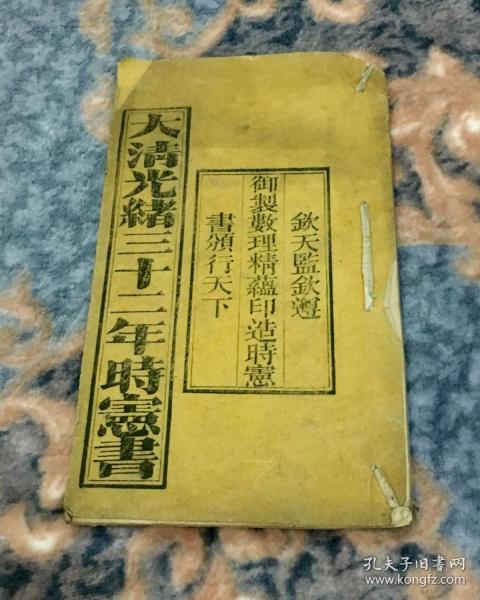 大清光緒三十二年時憲書
欽天監欽遵
御製數理精蘊印造時憲
書頒行天下
孔夫子旧书网
www.kongfz.com